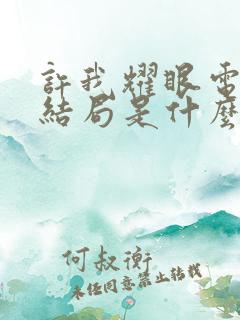 許我耀眼電
結局是什麼
何叔衡
未经同意禁止转载